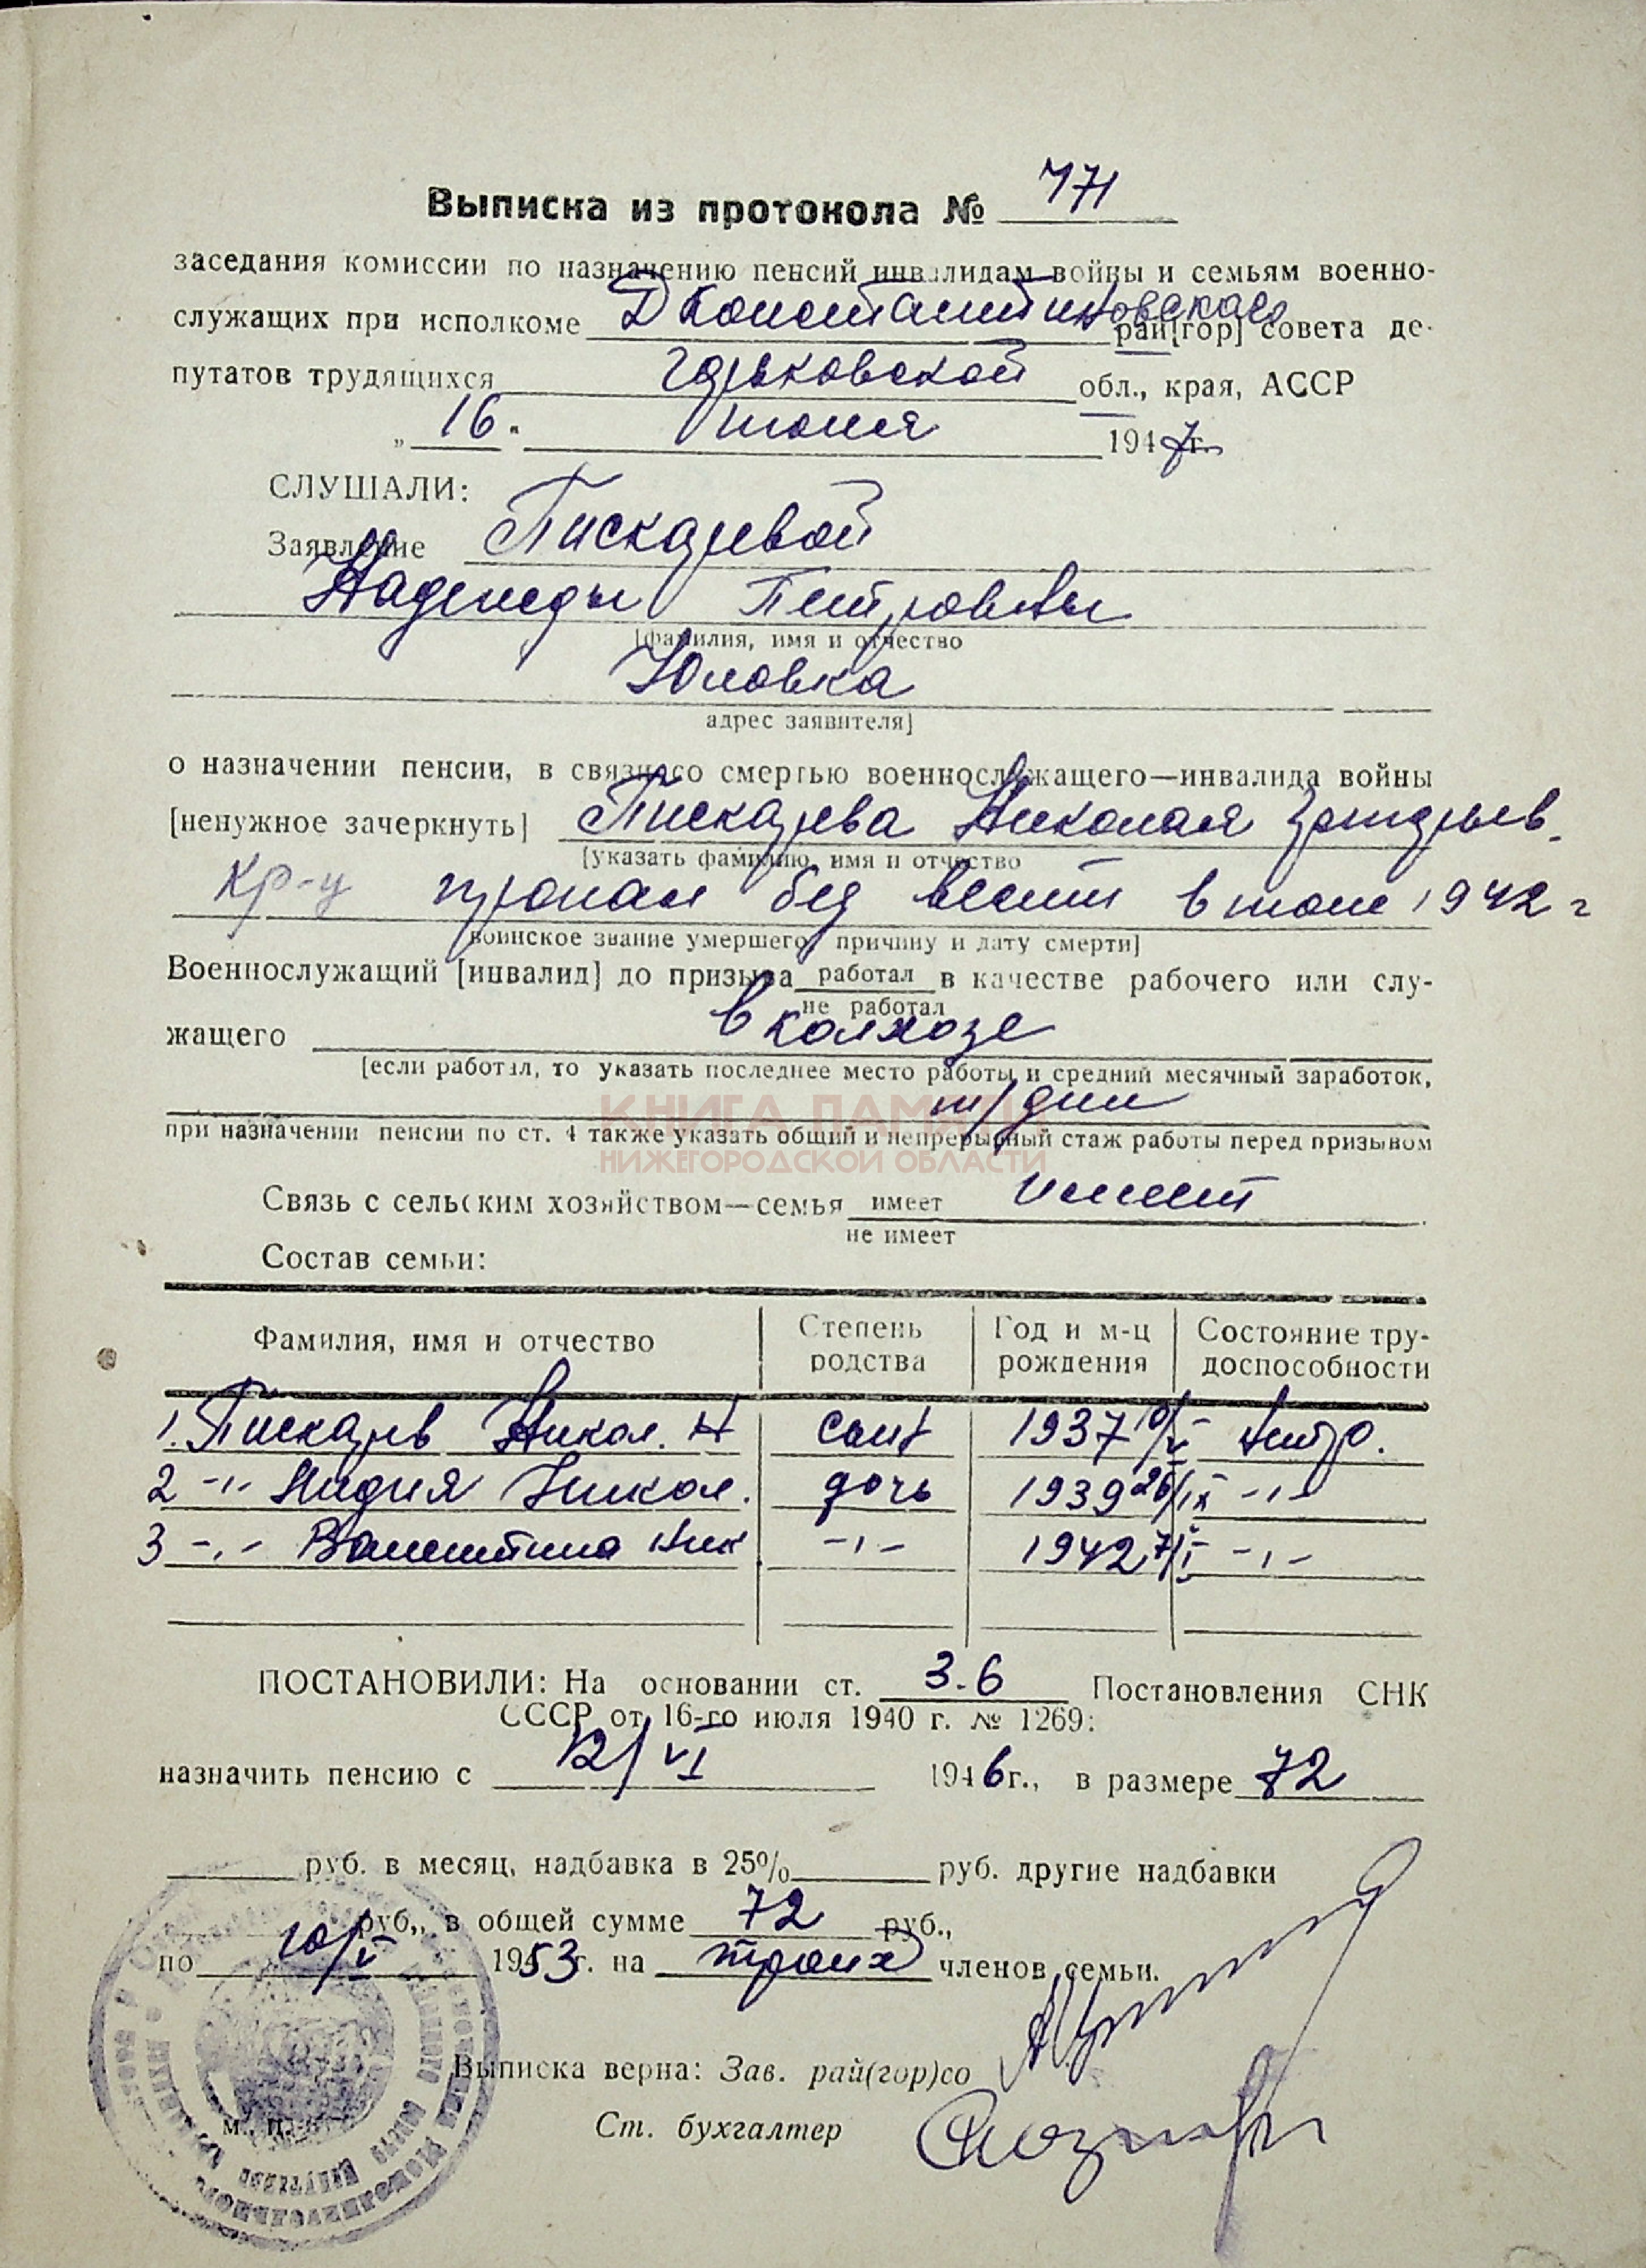 Выписка из протокола № 771
заседания комиссии по назначению пенсий инвалидам войны и семьям военно-
служащих при исполкоме Д Константиновского рай[гор] совета де-
путатов трудящихся Горьковской обл., края, АССР
„ 16 " июня 1947г.
СЛУШАЛИ:
Заявление Пискаревой
Надежды Петровны
[фамилия, имя и отчество
Юловка
адрес заявителя]
о назначении пенсии, в связи со смертью военнослужащего—инвалида войны
[ненужное зачеркнуть] Пискарева Николая Григорьев.
[указать фамилию, имя и отчество
кр-ц пропал без вести в июле 1942 г
воинское звание умершего, причину и дату смерти]
Военнослужащий [инвалид] до призыва работал в качестве рабочего или слу-
не работал
жащего в колхозе
[если работал, то указать последнее место работы и средний месячный заработок,
т/дни
при назначении пенсии по ст. 4 также указать общий и непрерывный стаж работы перед призывом
КНИГА ПАМЯТИ
НИЖЕГОРОДСКОЙ ОБЛАСТИ
Связь с сельским хозяйством—семья имеет имеет
не имеет
Состав семьи:
Фамилия, имя и отчество Степень родства Год и м-ц рождения Состояние тру-доспособности
1. Пискарев Никол. Н сын 1937 10/V нетр.
2 -"- Лидия Никол. дочь 1939 26/IX -"-
3 -"- Валентина Ник -"- 1942 7/I -"-
ПОСТАНОВИЛИ: На основании ст. 3-6 Постановления СНК
СССР от 16-го июля 1940 г. № 1269:
назначить пенсию с 12/VI 1946г., в размере 72
руб. в месяц, надбавка в 25% руб. другие надбавки
руб., в общей сумме 72 руб.,
по 10/V 1953г. на троих членов семьи.
Выписка верна: Зав. рай(гор)со
м. п.
Ст. бухгалтер